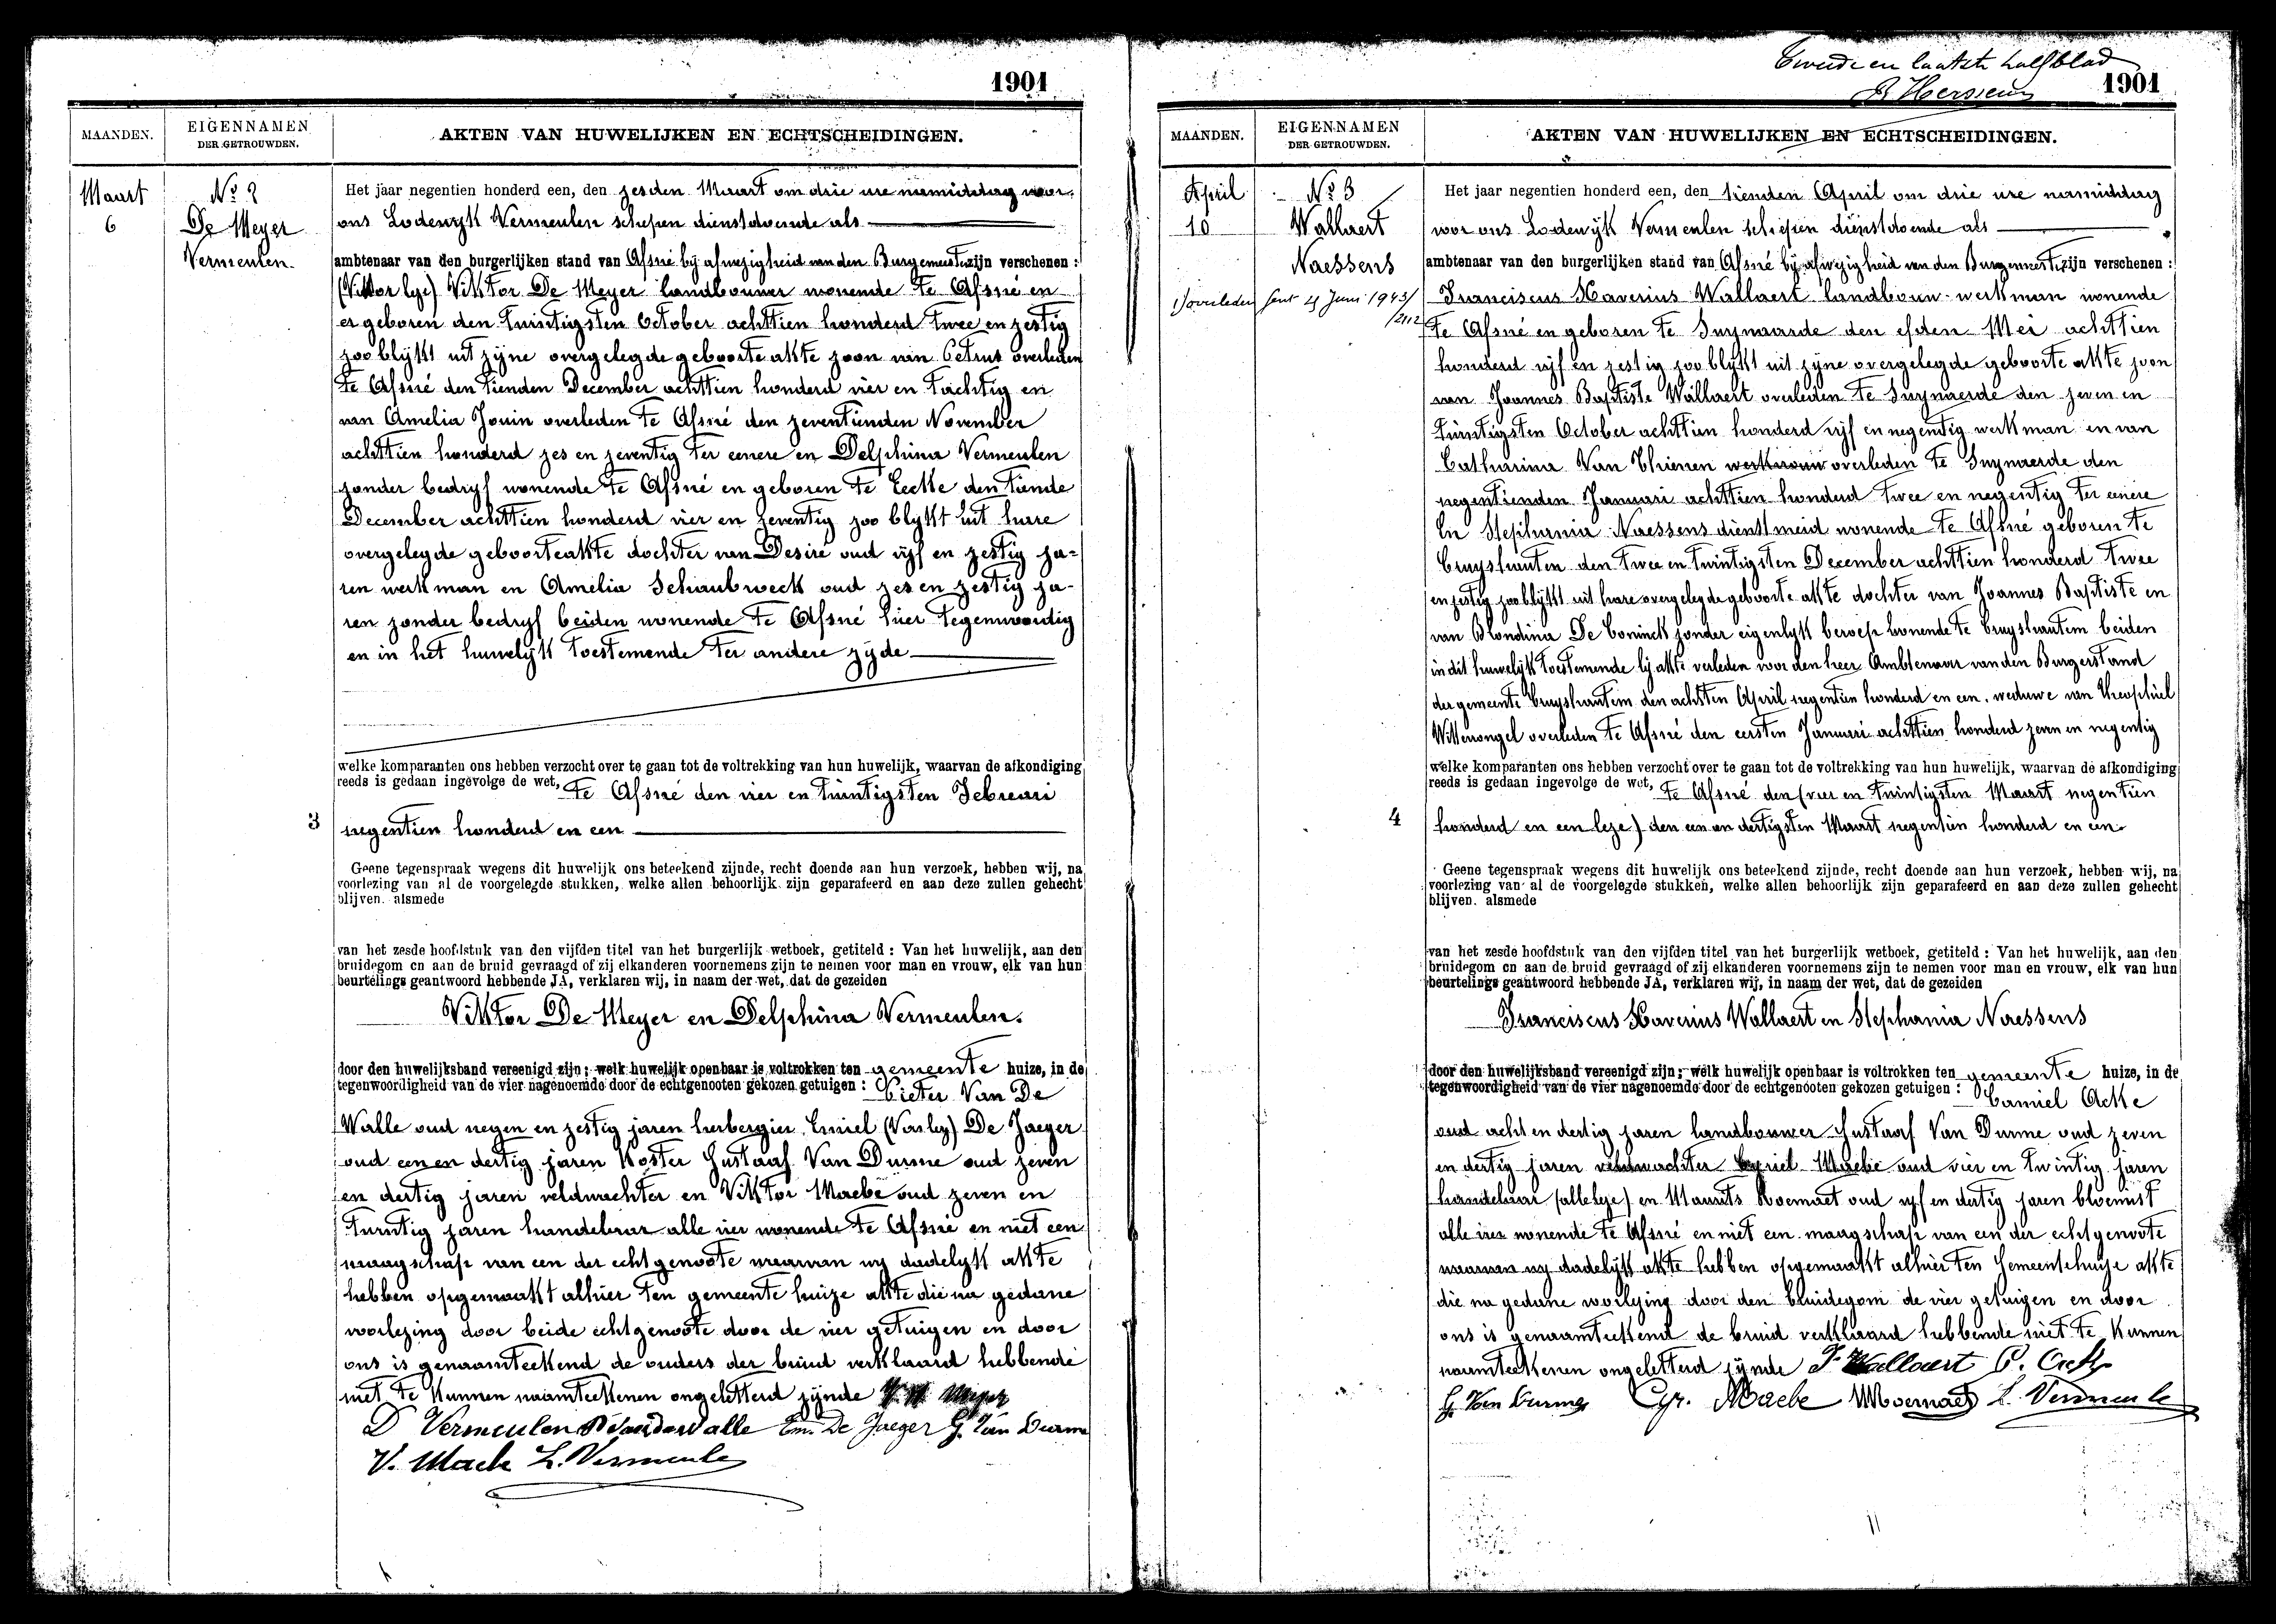 1901
MAANDEN.
EIGENNAMEN
DER GETROUWDEN.
AKTEN VAN HUWELIJKEN EN ECHTSCHEIDINGEN.
Maart
6
No 2
De Meyer
Vermeulen
Het jaar negentien honderd een, den zesden Maart om drie ure namiddag voor
ons Lodewyk Vermeulen schepen dienstdoende als
ambtenaar van den burgerlijken stand van Afsné bij afwezigheid van den Burgemeester zijn verschenen :
(Viktor lye) Viktor De Meyer landbouwer wonende te Afsné en
er geboren den Twintigsten October achttien honderd twee en zestig
zoo blykt uit zyne overgelegde geboorteakte zoon van Petrus overleden
te Afsné den tienden December achttien honderd vier en tachtig en
van Amelia Jouin overleden te Afsné den zeventienden November
achttien honderd zes en zeventig ter eenere en Delphina Vermeulen
zonder bedryf wonende te Afsné en geboren te Eecke den tiende
December achttien honderd vier en zeventig zoo blykt uit hare
overgelegde geboorteakte dochter van Desiré oud vyf en zestig ja-
ren werkman en Amelia Schaubroeck oud zes en zestig ja-
ren zonder bedryf beiden wonende te Afsné hier tegenwoordig
en in het huwelyk toestemende ter andere zyde
welke komparanten ons hebben verzocht over te gaan tot de voltrekking van hun huwelijk, waarvan de afkondiging
reeds is gedaan ingevolge de wet, te Afsné den vier en twintigsten Februari
3
negentien honderd en een
Geene tegenspraak wegens dit huwelijk ons beteekend zijnde, recht doende aan hun verzoek, hebben wij, na
voorlezing van al de voorgelegde stukken, welke allen behoorlijk zijn geparafeerd en aan deze zullen gehecht
blijven. alsmede
van het zesde hoofdstuk van den vijfden titel van het burgerlijk wetboek, getiteld : Van het huwelijk, aan den
bruidegom en aan de bruid gevraagd of zij elkanderen voornemens zijn te nemen voor man en vrouw, elk van hun
beurtelings geantwoord hebbende JA, verklaren wij, in naam der wet, dat de gezeiden
Viktor De Meyer en Delphina Vermeulen.
door den huwelijksband vereenigd zijn; welk huwelijk openbaar is voltrokken ten gemeente huize, in de
tegenwoordigheid van de vier nagenoemde door de echtgenooten gekozen getuigen : Pieter Van De
Walle oud negen en zestig jaren herbergier Emiel De Jaeger
oud een en dertig jaren Koster Gustaaf Van Durme oud zeven
en dertig jaren veldwachter en Viktor Maebe oud zeven en
twintig jaren handelaar alle vier wonende te Afsné en niet een
maagschap van een der echtgenoote waarvan wy dadelyk akte
hebben opgemaakt alhier ten gemeente huize akte die na gedane
voorlezing door beide echtgenoote door de vier getuigen en door
ons is genaamteekend de ouders der bruid verklaard hebbende
niet te kunnen naamteekenen ongeletterd zynde
D Vermeulen P Vandewalle Em. De Jaeger G. Van Durme
V. Maebe L. Vermeule
Tweede en laatste halfblad
1901
MAANDEN.
EIGENNAMEN
DER GETROUWDEN.
AKTEN VAN HUWELIJKEN EN ECHTSCHEIDINGEN.
April
10
No 3
Wallaert
Naessens
overleden Gent 29 Juni 1943
/2112
Het jaar negentien honderd een, den tienden April om drie ure namiddag
voor ons Lodewyk Vermeulen schepen dienstdoende als
ambtenaar van den burgerlijken stand van Afsné bij afwezigheid van den Burgemeester zijn verschenen :
Franciscus Xaverius Wallaert landbouw-werkman wonende
te Afsné en geboren te Swynaarde den elfden Mei achttien
honderd vyf en zestig zoo blykt uit zyne overgelegde geboorte akte zoon
van Joannes Baptiste Wallaert overleden te Swynaerde den zeven en
twintigsten October achttien honderd vyf en negentig werkman en van
Catharina Van Thienen werkvrouw overleden te Swynaerde den
negentienden Januari achttien honderd twee en negentig ter eenere
En Stephania Naessens dienstmeid wonende te Afsné geboren te
Cruyshautem den twee en twintigsten December achttien honderd twee
en zestig zoo blykt uit hare overgelegde geboorte akte dochter van Joannes Baptiste en
van Blondina De Coninck zonder eigenlyk beroep wonende te Cruyshautem beiden
in dit huwelyk toestemende bij akte verleden voor den heer Ambtenaar van den Burgerstand
der gemeente Cruyshautem den achtsten April negentien honderd en een, weduwe van Theophiel
Wittevrongel overleden te Afsné den eersten Januari achttien honderd zeven en negentig
welke komparanten ons hebben verzocht over te gaan tot de voltrekking van hun huwelijk, waarvan de afkondiging
reeds is gedaan ingevolge de wet, te Afsné den (vier en twintigsten Maart negentien
4
honderd en een leze) den een en dertigsten Maart negentien honderd en een
Geene tegenspraak wegens dit huwelijk ons beteekend zijnde, recht doende aan hun verzoek, hebben wij, na
voorlezing van al de voorgelegde stukken, welke allen behoorlijk zijn geparafeerd en aan deze zullen gehecht
blijven. alsmede
van het zesde hoofdstuk van den vijfden titel van het burgerlijk wetboek, getiteld : Van het huwelijk, aan den
bruidegom en aan de bruid gevraagd of zij elkanderen voornemens zijn te nemen voor man en vrouw, elk van hun
beurtelings geantwoord hebbende JA, verklaren wij, in naam der wet, dat de gezeiden
Franciscus Xaverius Wallaert en Stephania Naessens
door den huwelijksband vereenigd zijn; welk huwelijk openbaar is voltrokken ten gemeente huize, in de
tegenwoordigheid van de vier nagenoemde door de echtgenooten gekozen getuigen : Camiel Acke
oud acht en dertig jaren landbouwer Gustaaf Van Durme oud zeven
en dertig jaren veldwachter Maebe oud vier en twintig jaren
handelaar en Maurits Moernaet oud vyf en dertig jaren bloemist
alle vier wonende te Afsné en niet een maagschap van een der echtgenoote
waarvan wy dadelyk akte hebben opgemaakt alhier ten Gemeentehuize akte
die na gedane voorlezing door den bruidegom de vier getuigen en door
ons is genaamteekend de bruid verklaard hebbende niet te kunnen
naamteekenen ongeletterd zynde F. Wallaert C. Acke
G. Van Durme Cyr. Maebe MMoernaet L. Vermeule